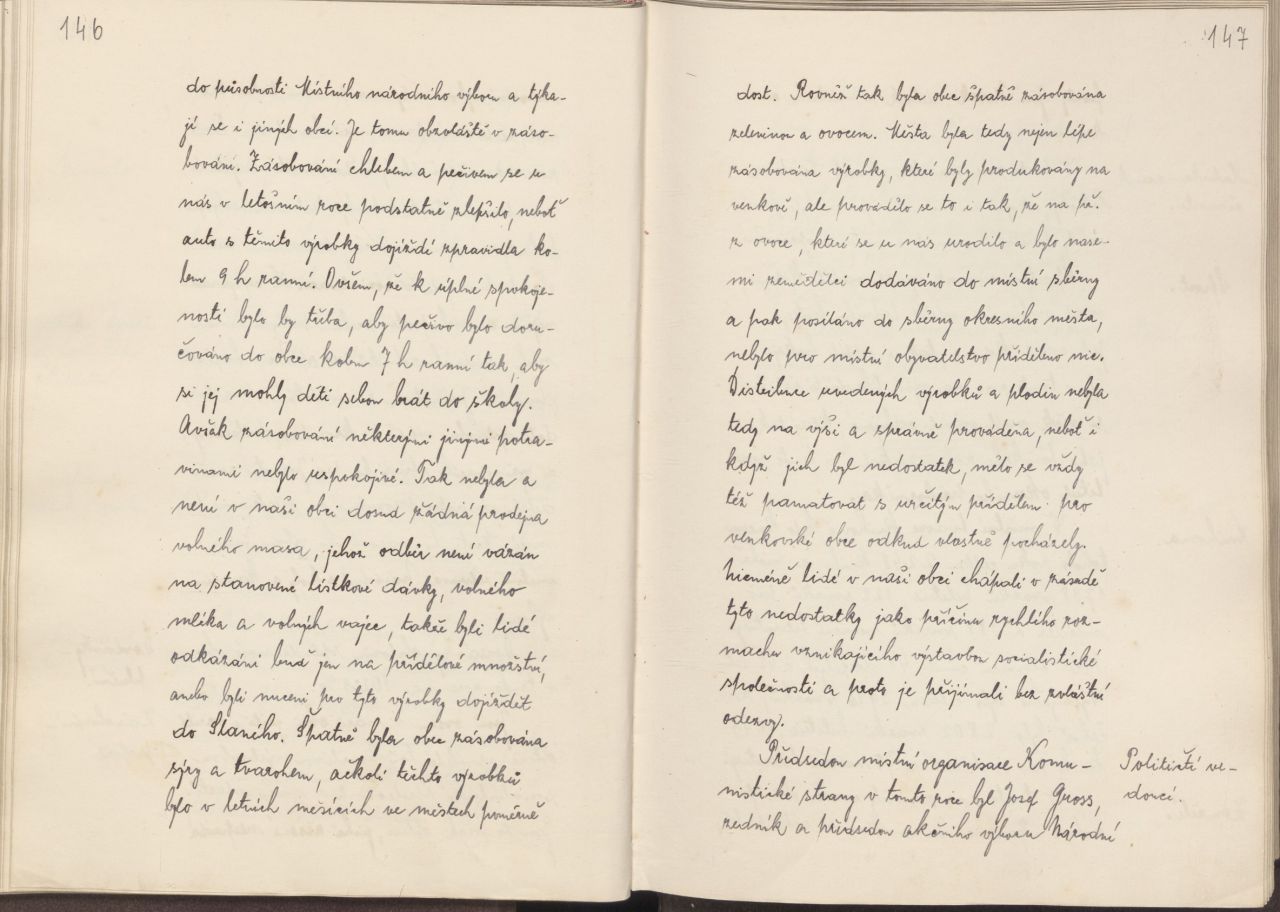 146
do působnosti Místního národního výboru a týka-
jí se i jiných obcí. Je tomu obzvláště v záso-
bování. Zásobování chlebem a pečivem se u
nás v letošním roce podstatně zlepšilo, neboť
auto s těmito výrobky dojíždí zpravidla ko-
lem 9 h ranní. Ovšem, že k úplné spokoje-
nosti bylo by třeba, aby pečivo bylo doru-
čováno do obce kolem 7 h ranní tak, aby
si jej mohly děti sebou brát do školy.
Avšak zásobování některými jinými potra-
vinami nebylo uspokojivé. Tak nebyla a
není v naší obci dosud žádná prodejna
volného masa, jehož odběr není vázán
na stanovené lístkové dávky, volného
mléka a volných vajec, takže byli lidé
odkázáni buď jen na přídělové množství,
anebo byli nuceni pro tyto výrobky dojíždět
do Slaného. Špatně byla obec zásobována
sýry a tvarohem, ačkoli těchto výrobků
bylo v letních měsících ve městech poměrně
147
dost. Rovněž tak byla obec špatně zásobována
zeleninou a ovocem. Města byla tedy nejen lépe
zásobována výrobky, které byly produkovány na
venkově, ale provádělo se to i tak, že na př.
z ovoce, které se u nás urodilo a bylo naše-
mi zemědělci dodáváno do místní sběrny
a pak posíláno do sběrny okresního města,
nebylo pro místní obyvatelstvo přiděleno nic.
Distribuce uvedených výrobků a plodin nebyla
tedy na výši a správně prováděna, neboť i
když jich byl nedostatek, mělo se vždy
též pamatovat s určitým přídělem pro
venkovské obce odkud vlastně pocházely.
Nicméně lidé v naší obci chápali v zásadě
tyto nedostatky jako příčinu rychlého roz-
machu vznikajícího výstavbou socialistické
společnosti a proto je přijímali bez zvláštní
odezvy.
Předsedou místní organisace Komu-
nistické strany v tomto roce byl Josef Gross,
zedník a předsedou akčního výboru Národní
Političtí ve-
doucí.